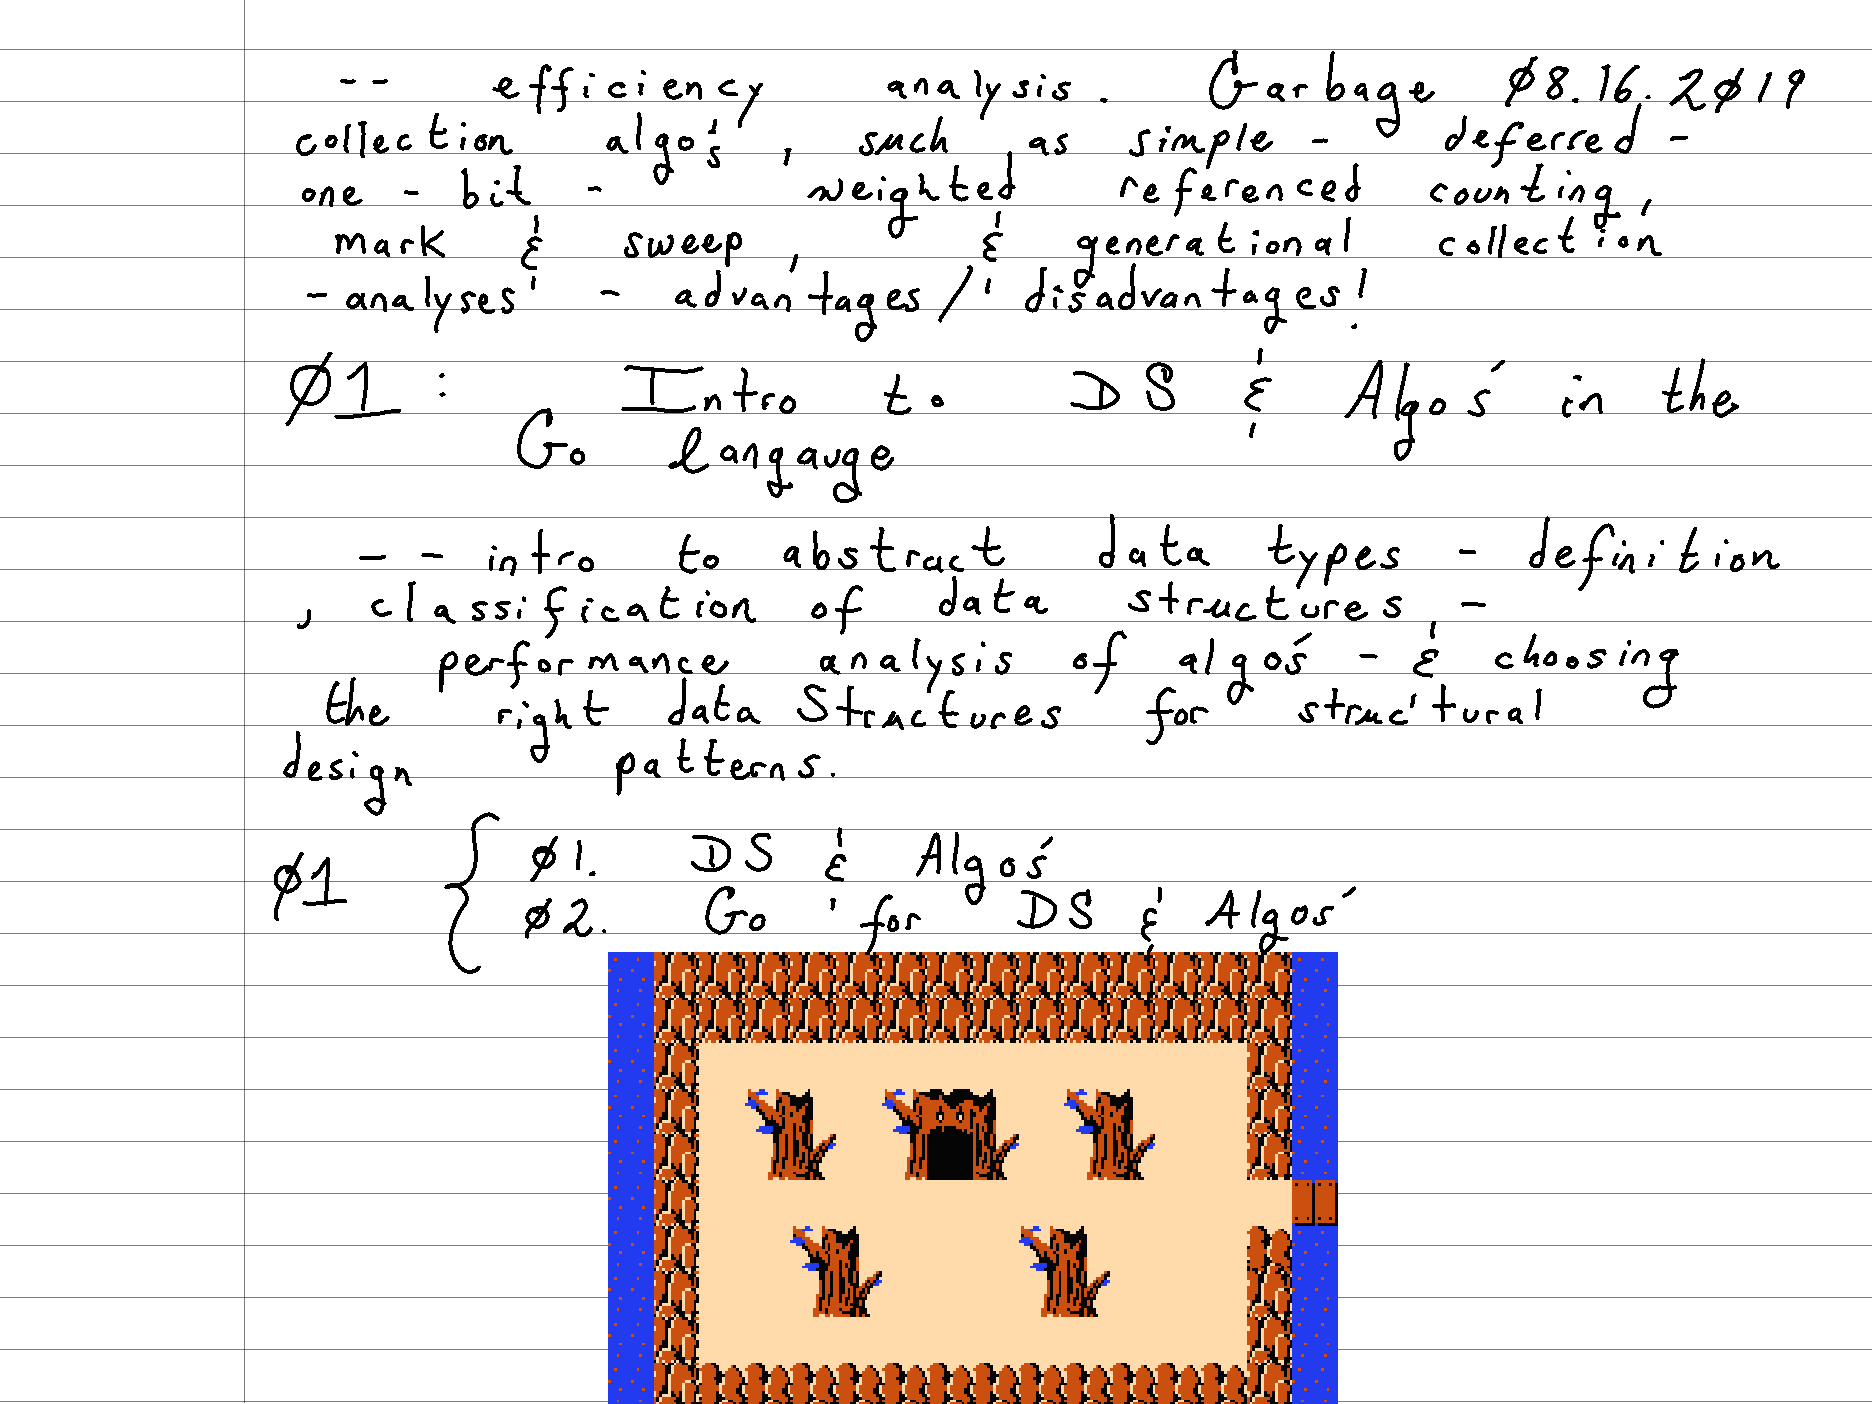 -- efficiency analysis. Garbage Ø8.16.2Ø19
collection algo's, such as simple - deferred -
one - bit - weighted referenced counting,
mark & sweep, & generational collection
- analyses' - advantages/' disadvantages!
Ø1 : Intro to DS & Algo's in the
Go langauge
-- intro to abstract data types - definition
, classification of data structures, -
performance analysis of algo's - & choosing
the right data Structures for struc'tural
design patterns.
Ø1 { Ø1. DS & Algo's
Ø2. Go ' for DS & Algos'